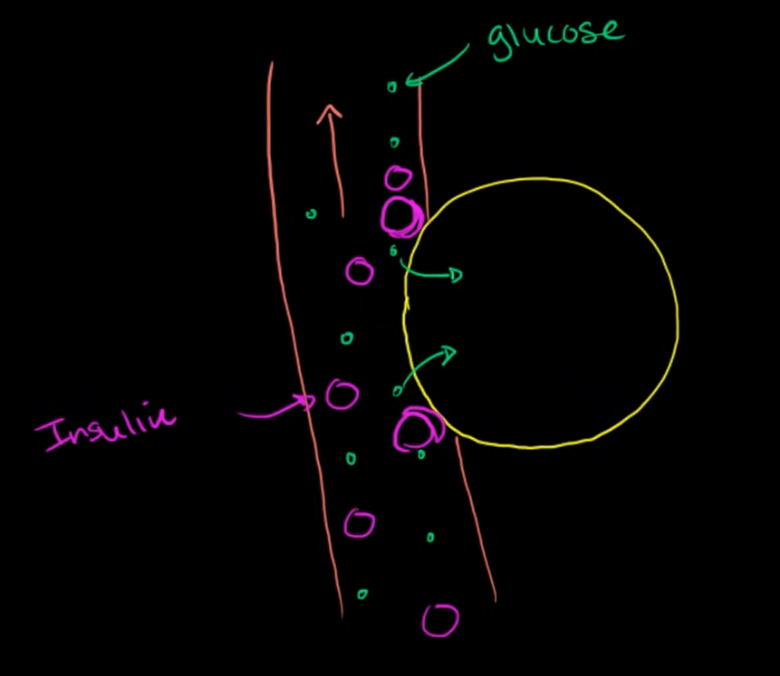 glucose
Insulin